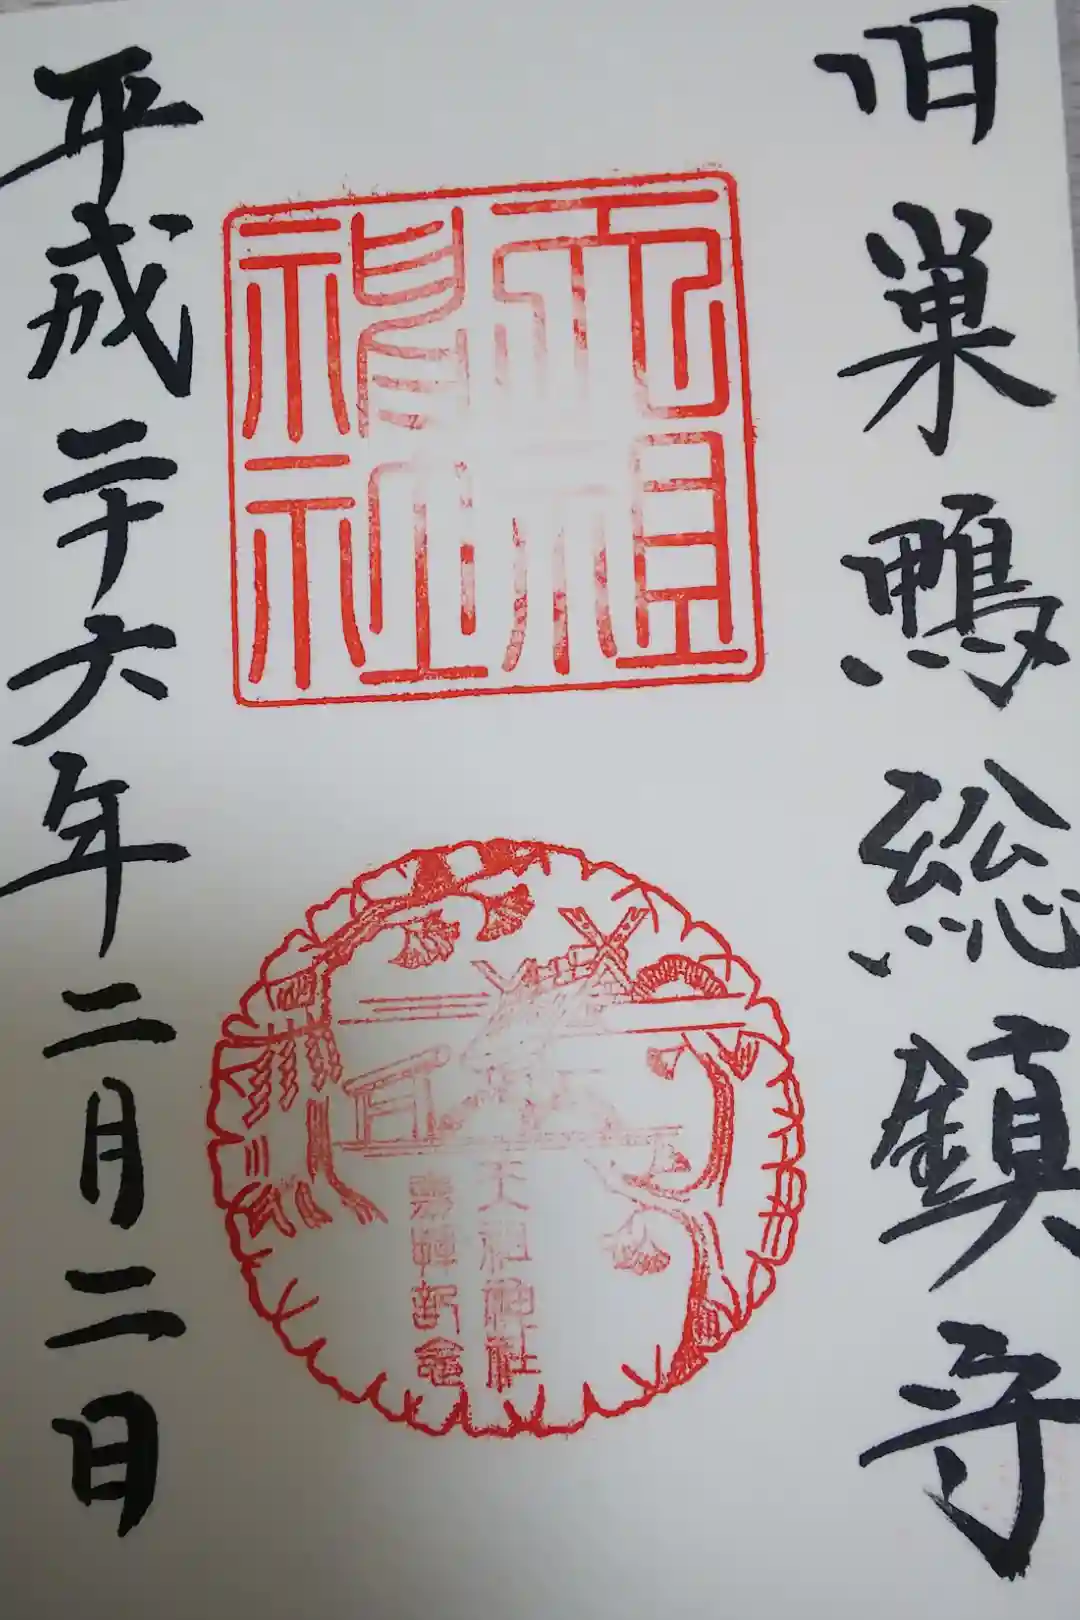 旧巣鴨総鎮守
天祖
神社
天祖神社
参拝記念
平成二十六年二月二日